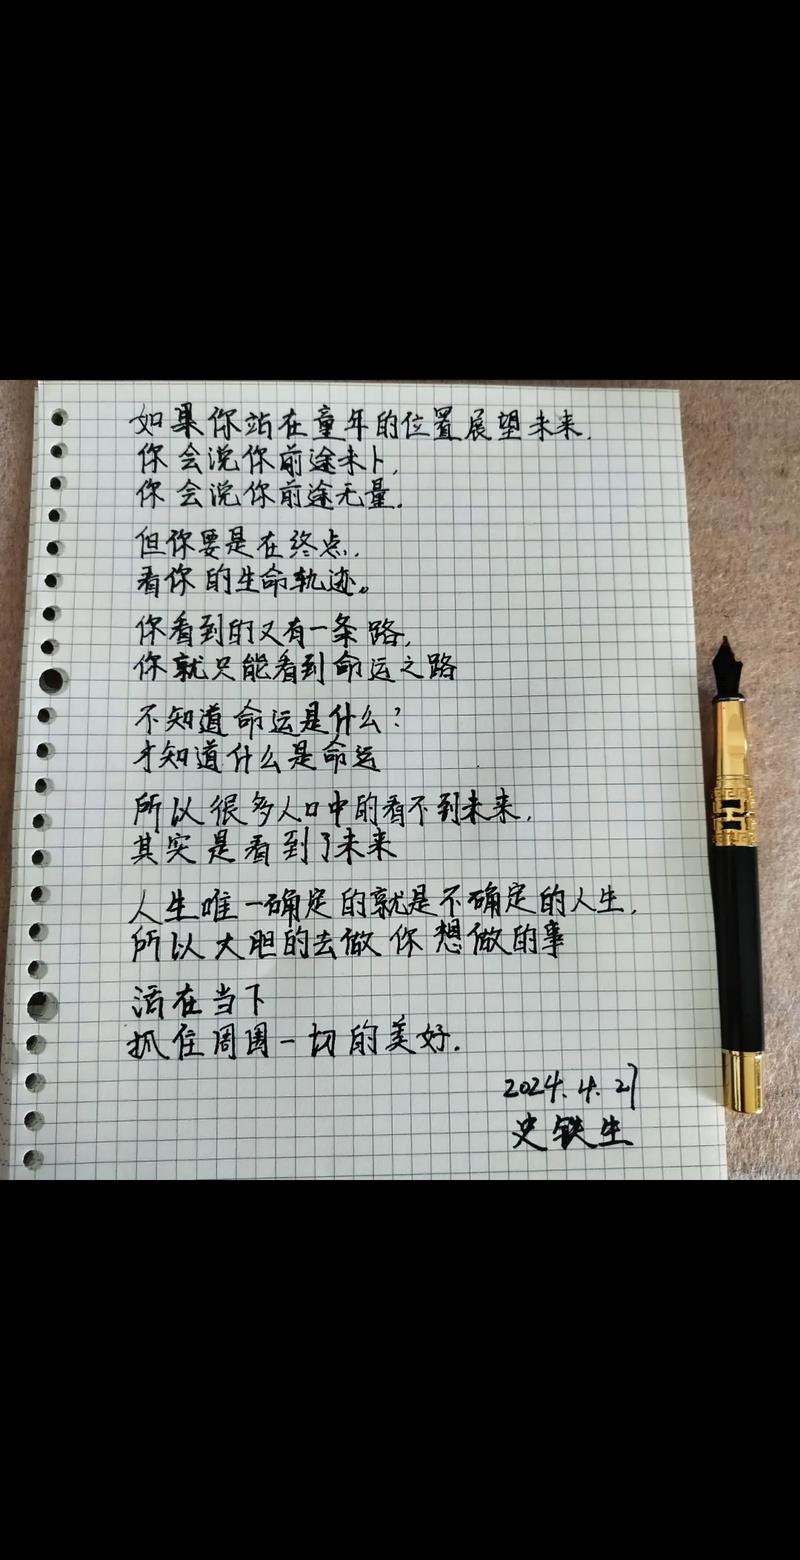 如果你站在童年的位置展望未来,
你会说你前途未卜,
你会说你前途无量.
但你要是在终点,
看你的生命轨迹。
你看到的又有一条路,
你就只能看到命运之路
不知道命运是什么?
才知道什么是命运
所以很多人口中的看不到未来,
其实是看到了未来
人生唯一确定的就是不确定的人生,
所以大胆的去做你想做的事
活在当下
抓住周围一切的美好.
2024.4.27
史铁生